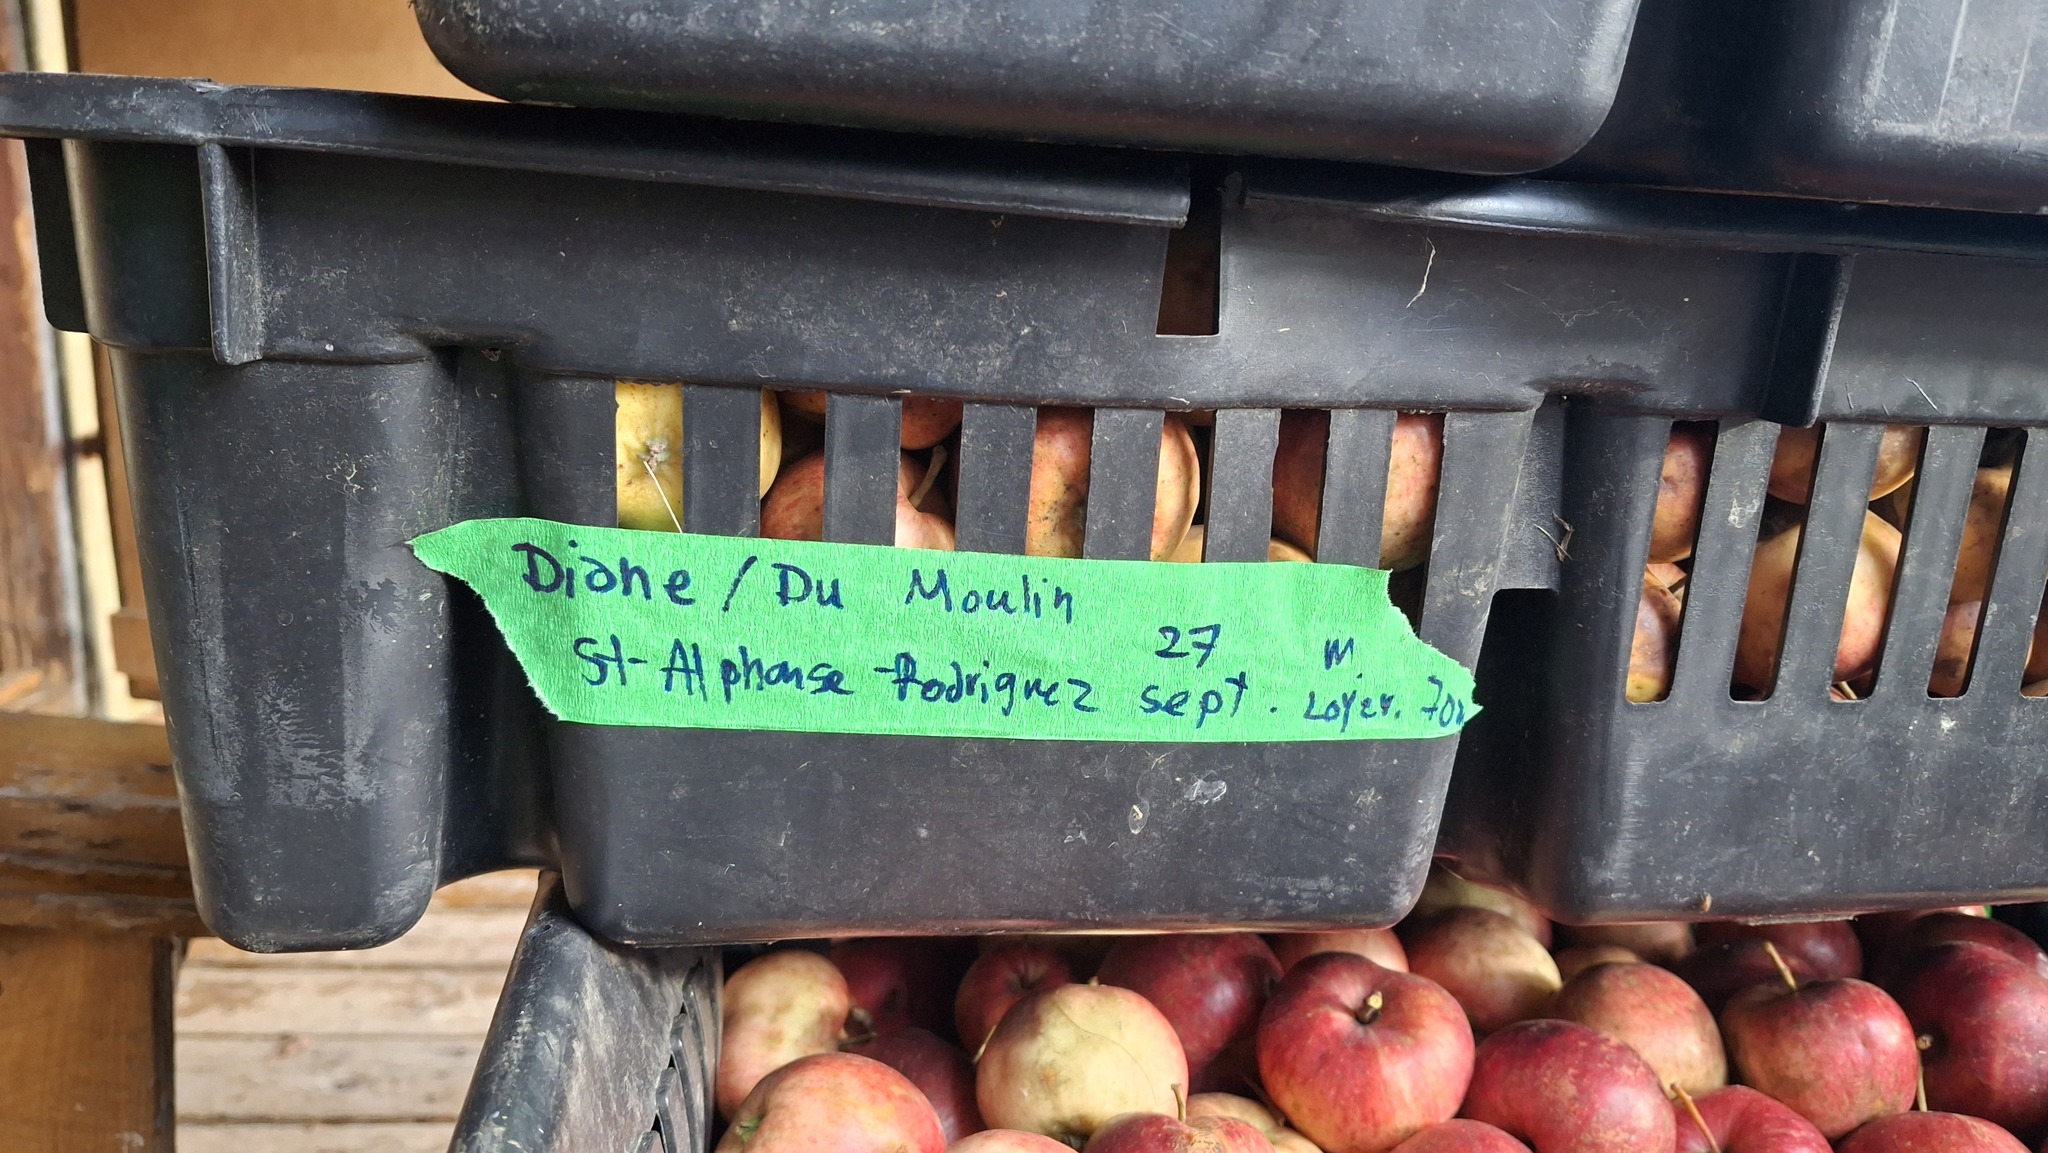 Diane / Du Moulin
27 m
St-Alphonse-Rodriguez sept.